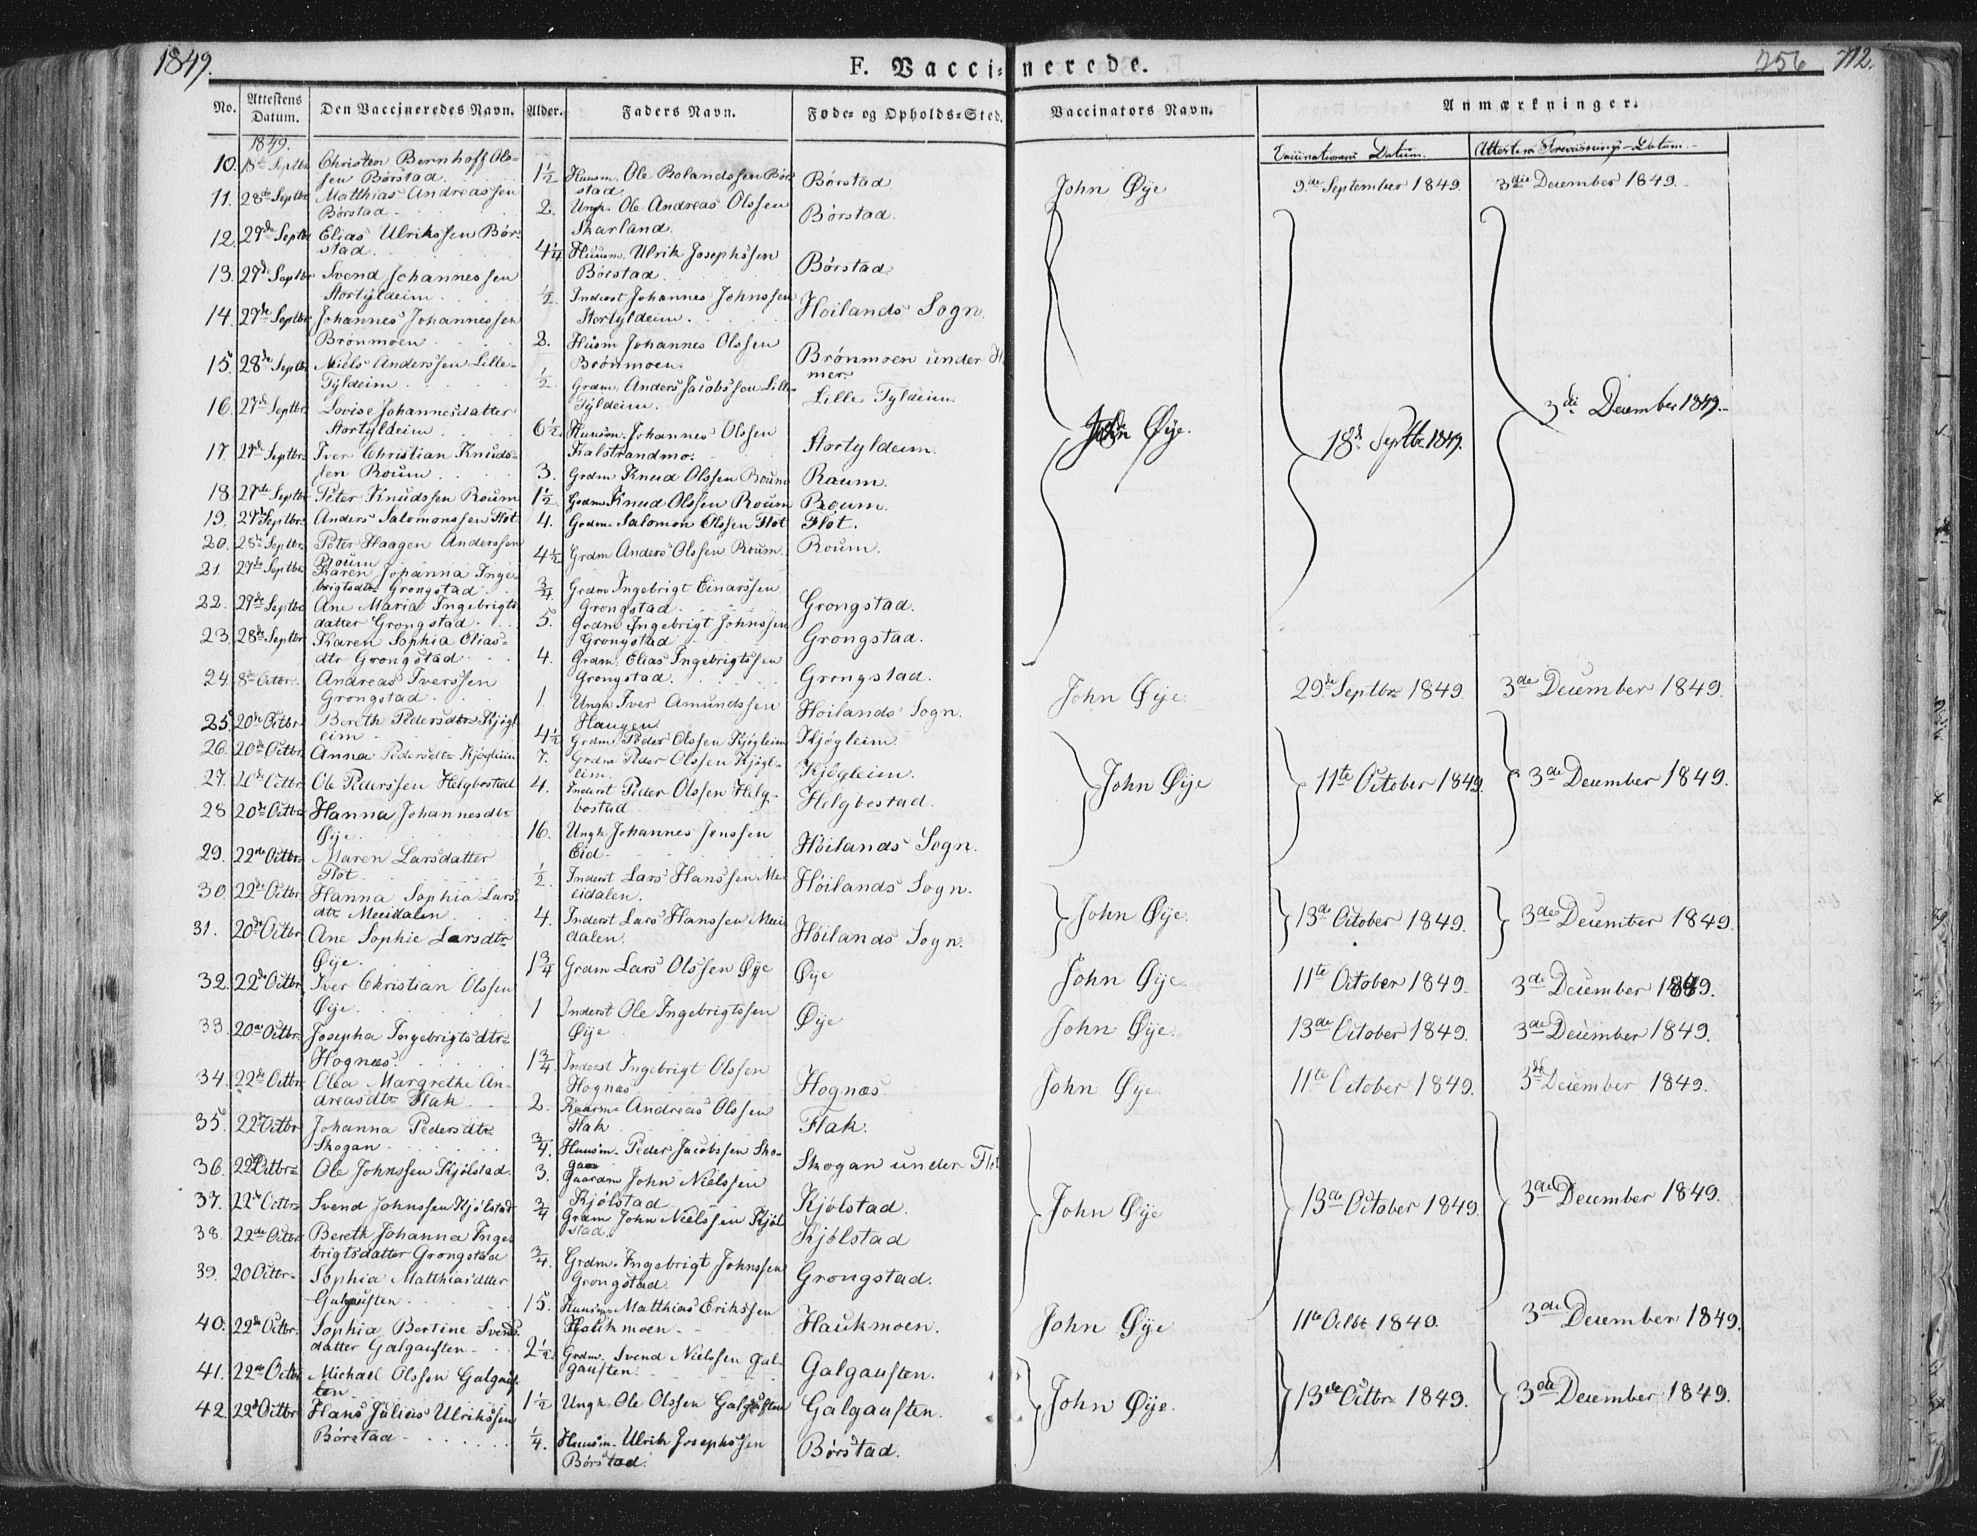 1849.
F. Vaccinerede.
256 712.
No. Attestens Datum. Den Vaccineredes Navn. Alder. Faders Navn. Føde- og Opholds-Sted. Vaccinators Navn. Anmærkninger.
Vaccinationens Datum. Attestens Forevisnings-Datum.
1849.
10. 18de Septbr Christen Bernhoff Olssen Børstad 1½ Huusm. Ole Rolandssen Børstad Børstad John Øye 9de September 1849. 3die December 1849.
11. 28de Septbr Matthias Andreassen Børstad 2. Ungk. Ole Andreas Olssen Skarland. Børstad.
12. 27de Septbr Elias Ulrikssen Børstad. 4¼ Huusm. Ulrik Josephssen Børstad Børstad
13. 27de Septbr Svend Johannessen Stortyldeim ½ Inderst Johannes Johnssen Stortyldeim. Høilands Sogn.
14. 27de Septbr Johannes Johannessen Brønmoen 2. Husm Johannes Olssen Brønmoen. Brønmoen under
15. 28de Septbr Niels Anderssen Lille-Tyldeim ½ Grdm. Anders Jacobssen Lille-Tyldeim. Lille Tyldeim.
16. 27de Septbr Lovise Johannesdatter Stortyldeim 6½ Huusm. Johannes Olssen Kalstrandmo. Stortyldeim. John Øye. 18de Septbr 1849. 3die December 1849.
17. 27de Septbr Iver Christian Knudssen Roum 3. Grdm Knud Olssen Roum Raum.
18. 27de Septbr Peter Knudssen Roum 1½ Grdm Knud Olssen Roum Roum.
19. 27de Septbr Anders Salomonssen Flot 4. Grdm. Salomon Olssen Flot Flot.
20. 28de Septbr Peter Haagen Anderssen Roum 4½ Grdm Anders Olssen Roum. Roum.
21. 27de Septbr Karen Johanna Ingebrigtsdtr Grongstad ¾ Grdm Ingebrigt Einarssen Grongstad Grongstad.
22. 27de Septbr Ane Maria Ingebrigtsdatter Grongstad. 5. Grdm Ingebrigt Johnssen Grongstad Grongstad.
23. 28de Septbr Karen Sophia Eliasdtr Grongstad 4. Grdm. Elias Ingebrigtssen Grongstad. Grongstad.
24. 8de Octbr. Andreas Iverssen Grongstad. 1 Ungk Iver Amundssen Haugen Høilands Sogn. John Øye 29de Septbr 1849. 3de December 1849.
25. 20de Octbr Bereth Pedersdtr Kjøgleim 4½ Grdm. Peder Olssen Kjøgleim Kjøgleim.
26. 20de Octbr Anna Pedersdtr Kjøgleim 7. Grdm Peder Olssen Kjøgleim. Kjøgleim. John Øye 11te October 1849. 3de December 1849.
27. 20de Octbr Ole Pederssen Helgbostad 4. Inderst Peder Olssen Helgbostad Helgbostad.
28 20de Octbr Hanna Johannesdtr Øye. 16. Ungk Johannes Jenssen Eid Høilands Sogn.
29. 22de Octbr. Maren Larsdatter Flot ½ Inderst Lars Hanssen Meeidalen. Høilands Sogn.
30. 22de Octbr Hanna Sophia Larsdtr Meeidalen 4. Inderst Lars Hanssen Meeidalen. Høilands Sogn. John Øye. 13de October 1849. 3de December 1849.
31. 20de Octbr Ane Sophie Larsdtr Øye. 1¾ Grdm Lars Olssen Øye Øye John Øye. 11te October 1849. 3de December 1849.
32. 22de Octbr. Iver Christian Olssen Øye. 1 Inderst Ole Ingebrigtssen Øye Øye John Øye. 13de October 1849. 3de December 1849.
33. 20de Octbr. Josepha Ingebrigtsdtr Hognæs. 1¾ Inderst Ingebrigt Olssen Hognæs Hognæs. John Øye. 11te October 1849. 3de December 1849.
34. 22de Octbr. Olea Margrethe Andreasdtr Flak 2. Andreas Olssen Flak Flak.
35. 22de Octbr Johanna Pedersdtr Skogan ¾. Huusm. Peder Jacobssen Skogan Skogan under Flot
36. 22de Octbr. Ole Johnssen Kjølstad. 3. Gaardm John Nielssen Kjølstad Kjølstad.
37. 22de Octbr Svend Johnssen Kjølstad ¾ Grdm John Nielssen Kjølstad. Kjølstad John Øye 13de October 1849. 3de December 1849.
38. 22de Octbr Bereth Johanna Ingebrigtsdatter Grongstad ¾. Grdm. Ingebrigt Johnssen Grongstad. Grongstad.
39. 20 Octbr. Sophia Matthiasdtter Galgauften 15. Huusm Matthias Erikssen Haukmoen Haukmoen. John Øye 11te Octbr 1849. 3de December 1849.
40. 22de Octbr. Sophia Bertine Svendsdatter Galgauften. 2½. Grdm. Svend Nielssen Galgauften. Galgauften.
41. 22de Octbr Michael Olssen Galgauften 1½ Ungk. Ole Olssen Galgauften Galgauften. John Øye. 13de Octbr 1849. 3de December 1849.
42. 22de Octbr Hans Julius Ulrikssen Børstad ¼. Huusm. Ulrik Josephssen Børstad. Børstad.